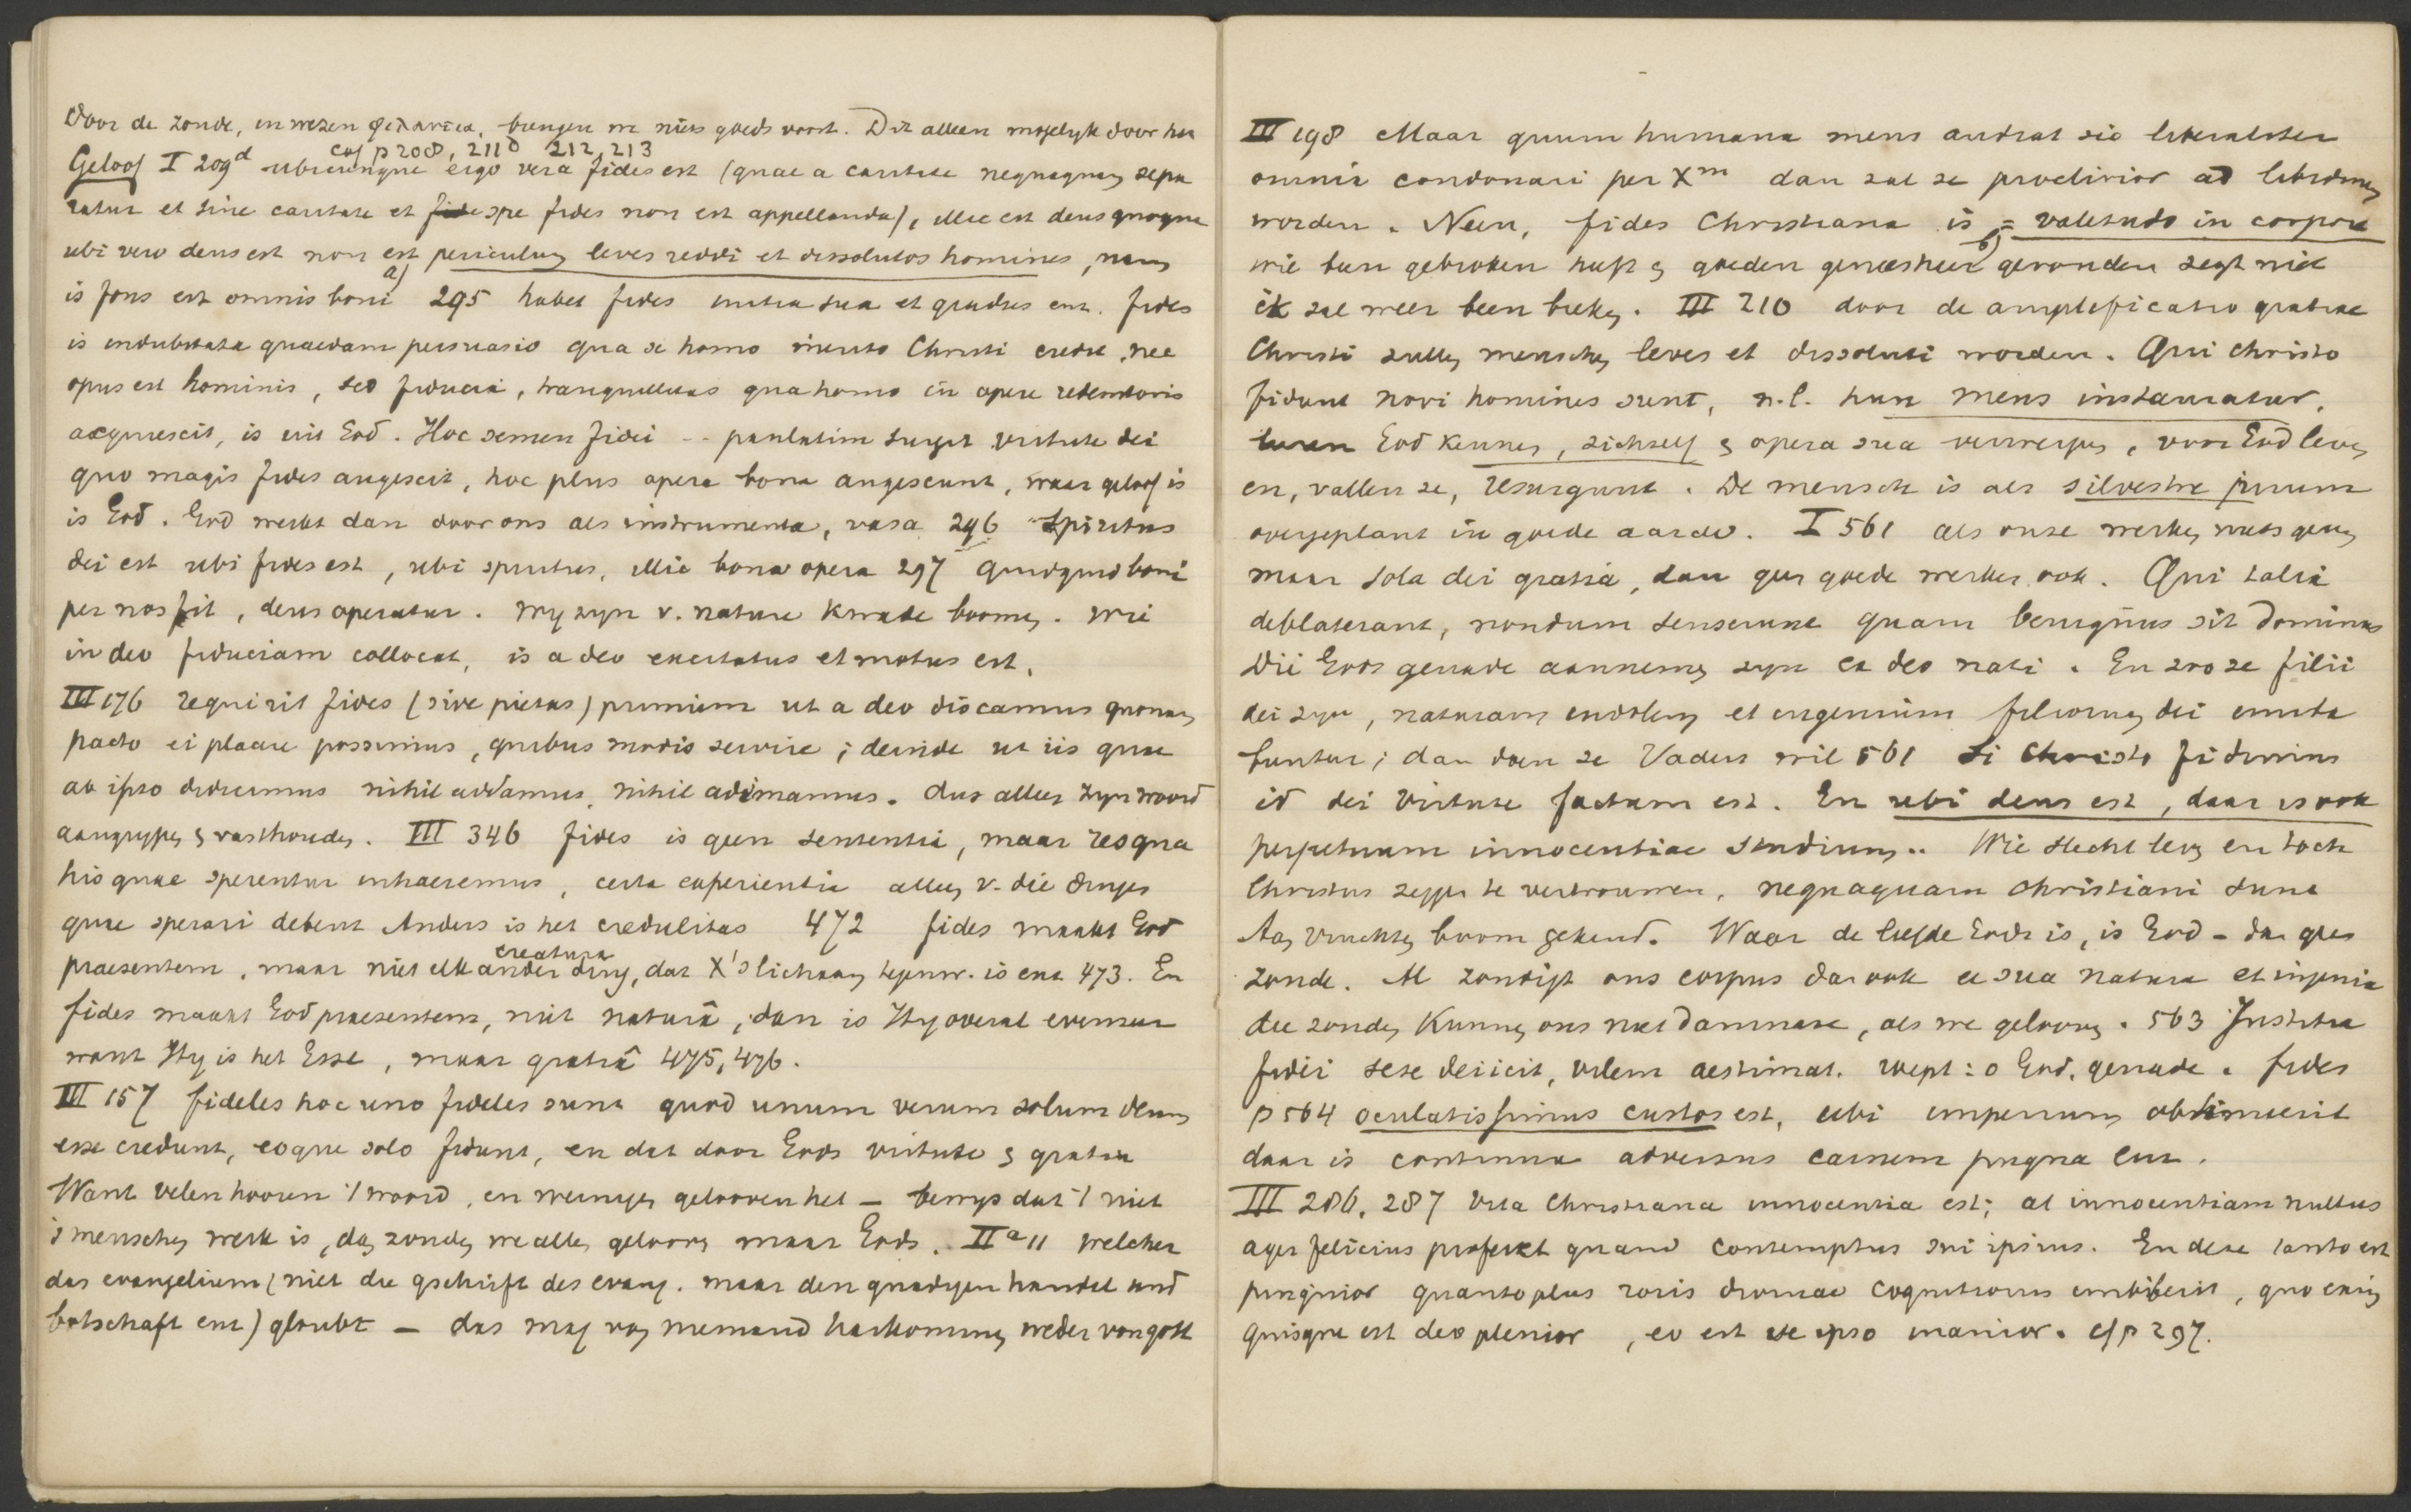 Door de zonde, in wezen φιλαυτια, brengen we niets goeds voort. Dit alleen mogelyk door het
cof p 208, 211d 212, 213
Geloof I 209d ubicunque ergo vera fides est (quae a caritate nequaquam sepa
ratur et sine caritate et spe fides non est appellanda), illic est deus quoque
ubi vero deus est non est periculum leves reddi et dissolutos homines, nam
a)
is fons est omnis boni 295 habet fides initia sua et gradus enz. fides
is indubitata quaedam persuasio qua se homo merito Christi credit, nec
opus est hominis, sed fiducia, tranquillitas qua homo in opere redemtoris
acquiescit, is uit God. Hoc semen fidei -- paulatim surgit virtute dei
quo magis fides augescit, hoc plus opera bona augescunt, waar geloof is
is God. God werkt dan door ons als instrumenta, vasa 296 Spiritus
dei est ubi fides est, ubi spiritus, illic bona opera 297 Quidquid boni
per nos fit, deus operatur. Wy zyn v. nature kwade boomen. Wie
in deo fiduciam collocat, is a deo excitatus et motus est.
III 176 requirit fides (sive pietas) primum ut a deo discamus quonam
pacto ei placere possimus, quibus modis servire; deinde ut iis quae
ab ipso didicimus nihil addamus, nihil adimamus. Aus alles zyn woord
aangrypen & vasthouden. III 346 fides is geen sententia, maar res qua
his quae sperentur inhaeremus, certa experientia alles v. die dinges
quae sperari debent Anders is het credulitas 472 fides maakt God
creatura
praesentem, maar niet elk ander ding, dat X's lichaam tegenw. is enz 473. En
fides maakt God praesentem, niet naturâ, dan is Hy overal evenzeer
want Hy is het Esse, maar gratiâ 475, 476.
III 157 fideles hoc uno fideles sunt quod unum verum solum deum
esse credunt, eoque solo fidunt, en dat door Gods virtute & gratia
Want velen hooren 't woord, en weinigen gelooven het – bewys dat 't niet
's menschen werk is, dan zouden we allen gelooven maar Gods. IIa 11 welcher
das evangelium (niet die gschrift des evang. maar den gnadigen handel und
botschaft enz) gloubt – das mag von niemand harkommen weder von gott
III 198 Maar quum humana mens audiat sic liberaliter
omnia condonari per Xm dan zal ze proclivior ad libidinem
worden. Neen, fides Christiana is = valetudo in corpore
b)
wie been gebroken heeft & goeden geneesheer gevonden zegt niet
ik zal weer been breken. III 210 door de amplificatio gratiae
Christi zullen menschen leves et dissoluti worden. Qui Christo
fidunt novi homines sunt, n.l. hun mens instauratur,
God kennen, zichzelf & opera sua verwerpen, voor God leven
en, vallen ze, resurgunt. De mensch is als silvestre pirum
overgeplant in goede aarde. I 561 als onze werken niets geven
maar sola dei gratia, dan geen goede werken ook. Qui talia
deblaterant, nondum senserunt quam benignus sit dominus
Die Gods genade aannemen zyn ex deo nati. En zoo ze filii
dei zyn, naturam indolem et ingenium filiorum dei imita
buntur; dan doen ze Vaders wil 561 Si Christo fidimus
id dei virtute factum est. En ubi deus est, daar is ook
perpetuum innocentiae studium.. Wie slecht leven en toch
Christus zeggen te vertrouwen, nequaquam christiani sunt
Aan vruchten boom gekend. Waar de liefde Gods is, is God – dus geen
zonde. Al zondigt ons corpus dan ook e sua natura et ingenio
die zonden kunnen ons niet damnare, als we gelooven. 563 Justitia
fidei sese deiicit, vilem aestimat. roept: o God, genade. fides
p 564 oculatissimus custos est, ubi imperium obtinuerit
daar is continua adversus carnem pugna enz.
III 286, 287 Vita Christiana innocentia est; at innocentiam nullus
ager felicius profert quam contemptus sui ipsius. En deze tanto est
pinguior quanto plus roris divinae cognitionis imbiberit, quo enim
quisque est deo plenior, eo est se ipso inanior. cf p 297.